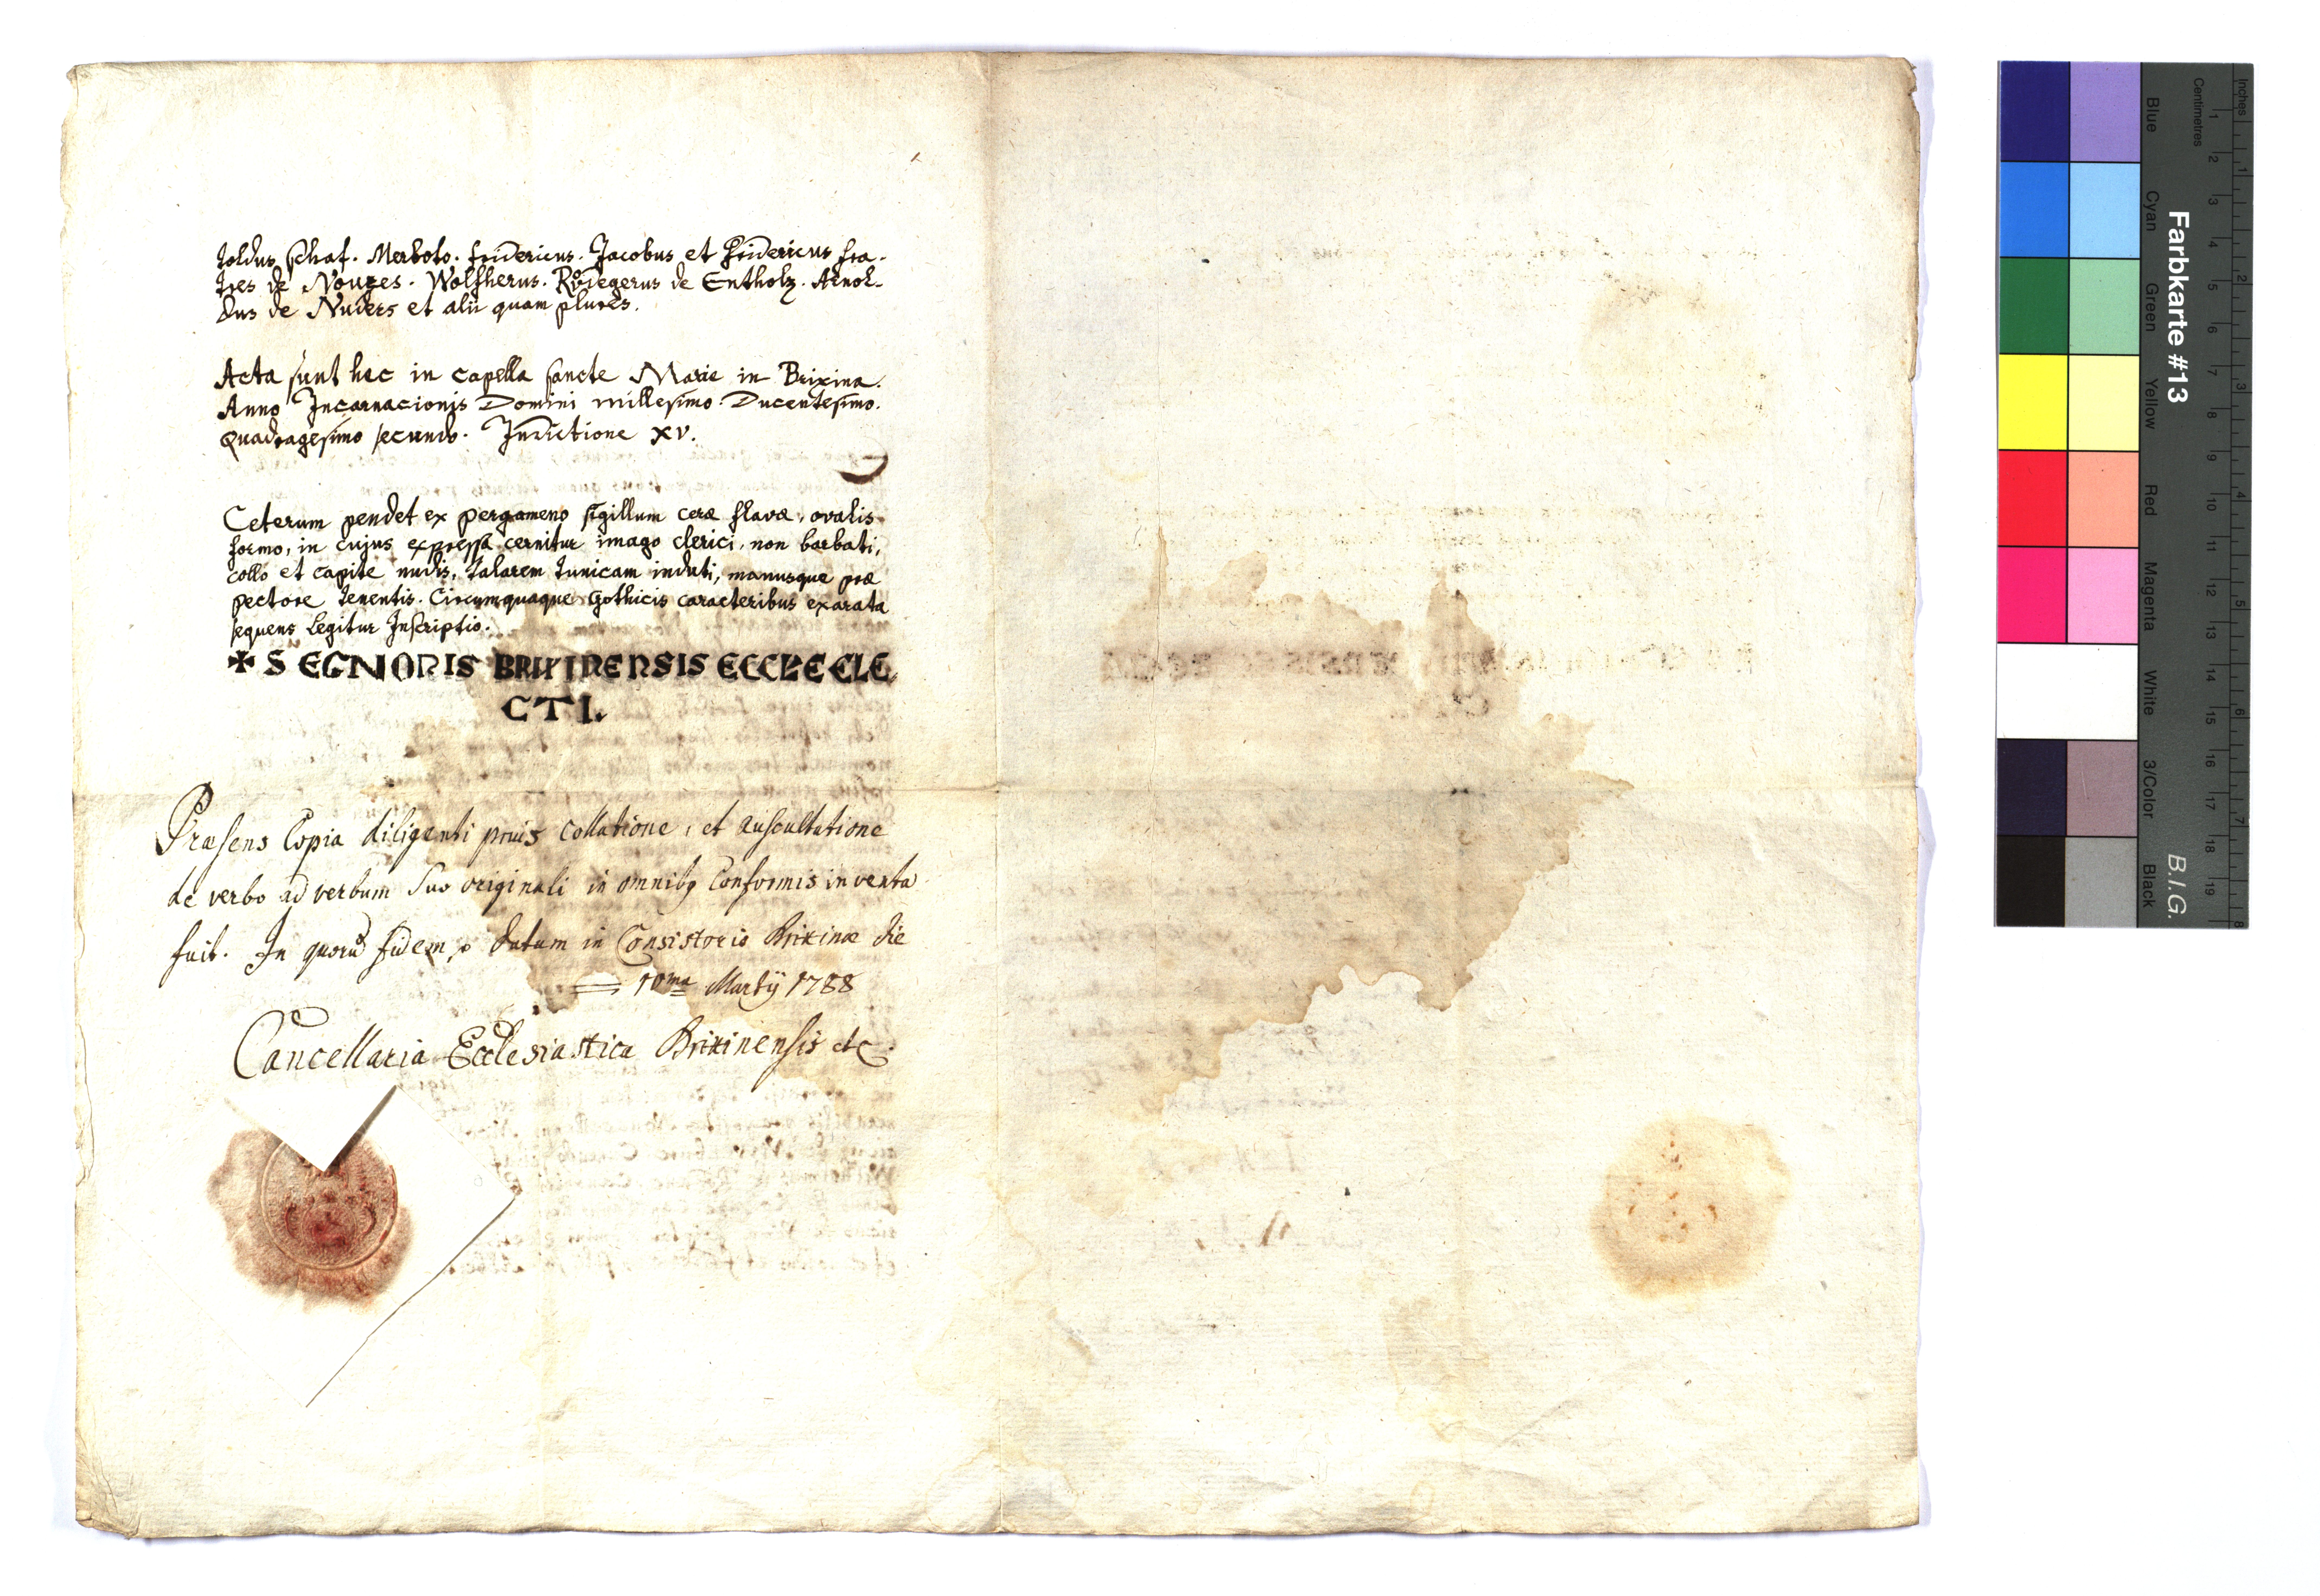 toldus Schaf. Merboto. Fridericus. Jacobus et Fridericus fra-
tres de Nouzes. Wolfherus. Růdegerus de Entholz. Arnol-
dus de Nuders et alii quam plures.
Acta sunt hec in capella sancte Marie in Brixina.
Anno Incarnacionis Domini millesimo. Ducentesimo.
Quadragesimo secundo. Indictione XV.
Ceterum pendet ex pergameno sigillum ceræ flavæ, ovalis
formo, in cujus expressa cernitur imago clerici, non barbati,
collo et capite nudis, talarem tunicam induti, manusque præ
pectore tenentis. Circumquaque Gothicis caracteribus exarata
sequens legitur Inscriptio.
✠ S EGNONIS BRIXINENSIS ECCLE ELE
CTI.
Præsens Copia diligenti prius collatione, et auscultatione
de verbo ad verbum suo originali in omnibq conformis inventa
fuit. In quorũ fidem, Datum in Consistorio Brixinæ die
10ma Martij 1788
Cancellaria Ecclesiastica Brixinensis etc.
Farbkarte #13
B.I.G.
Blue
Cyan
Green
Yellow
Red
Magenta
White
3/Color
Black
Centimetres
Inches
1 2 3 4 5 6 7 8 9 10 11 12 13 14 15 16 17 18 19
1 2 3 4 5 6 7 8